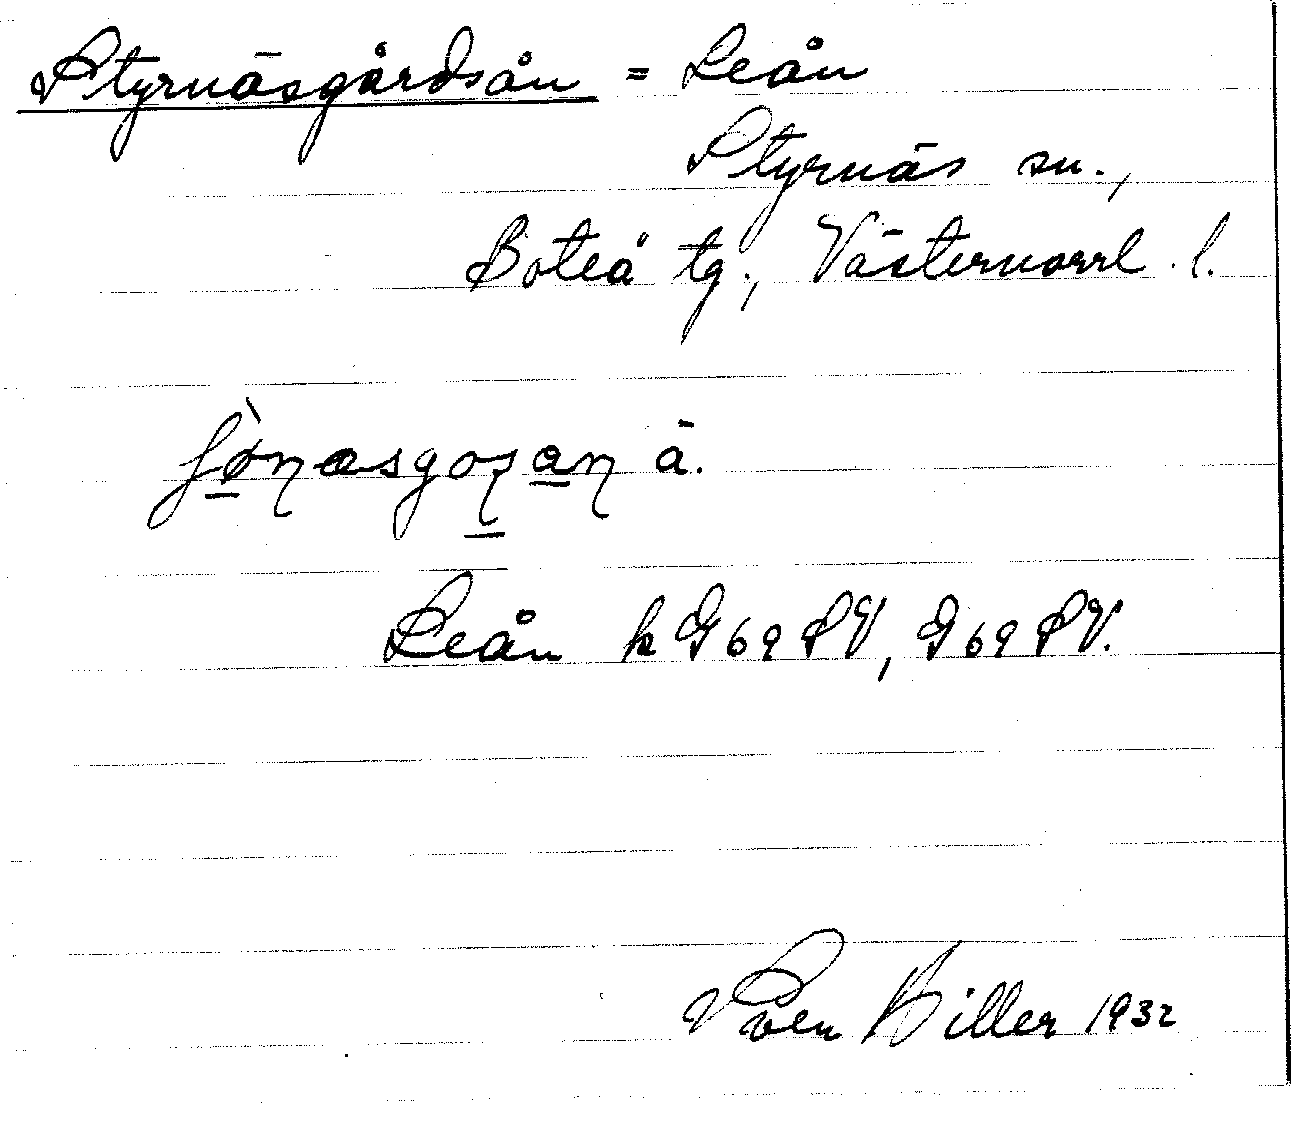 Styrnäsgårdsån = Leån
Styrnäs sn.,
Boteå tg., Västernorrl. l.
å.
Leån k G69SV, G69SV.
Sven Hiller 1932